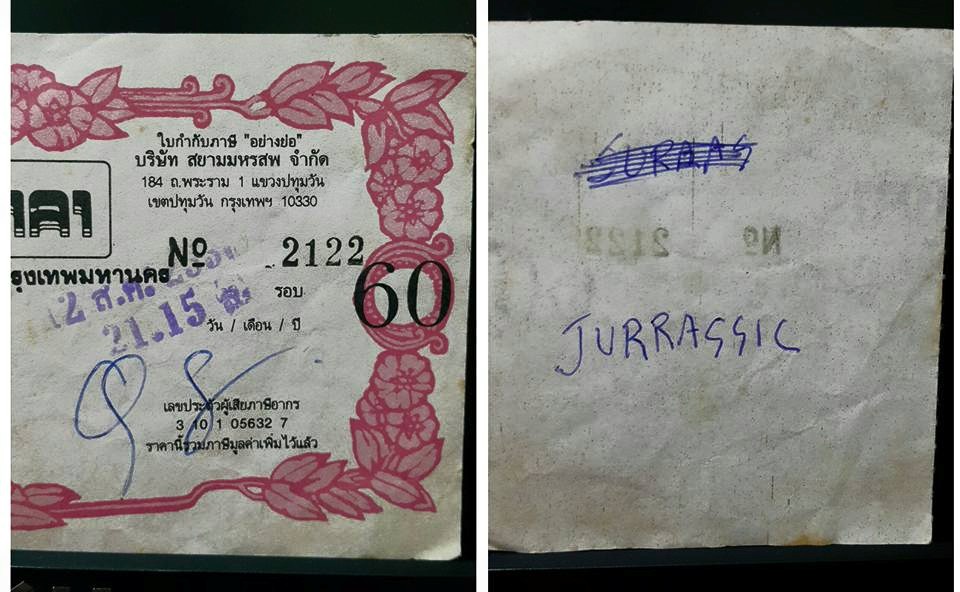 ใบกำกับภาษี "อย่างย่อ"
บริษัท สยามมหรสพ จำกัด
184 ถ.พระราม 1 แขวงปทุมวัน
เขตปทุมวัน กรุงเทพฯ 10330
Nº 2122
รุงเทพมหานคร
12 ส.ค.
รอบ
60
21.15 น.
วัน / เดือน / ปี
เลขประจำตัวผู้เสียภาษีอากร
3 10 1 05632 7
ราคานี้รวมภาษีมูลค่าเพิ่มไว้แล้ว
Nº 2122
JURRASSIC